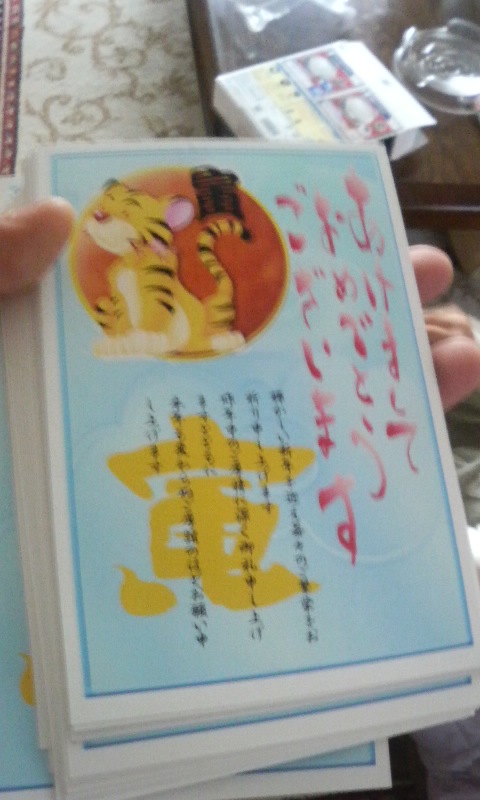 あけまして
おめでとう
ございます
寅
輝かしい新年を迎え皆々の御繁栄をお
祈り申し上げます
昨年中のご厚情に深く御礼申し上げ
ますとともに
本年も変わらぬご厚誼の程お願い申
し上げます
寅